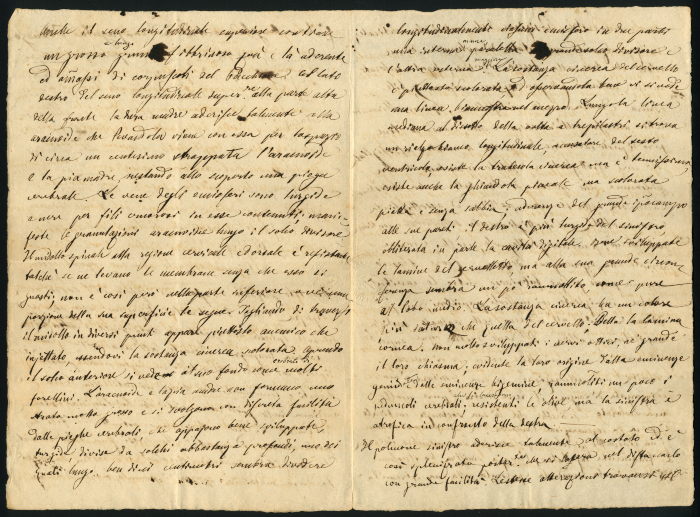 Anche il seno longitudinale superiore contiene
un grosso grumo fibrinoso quà e là aderente
ed ammassi di corpuscoli del Pacchioni al lato
destro del seno longitudinale super.re alla parte alta
della quale la dura madre aderisce talmente alla
aracnoide che levandola viene con essa per lo spazio
di circa un centesimo strappata l'aracnoide
e la pia madre, restando allo scoperto una piega
cerebrale. Le vene degli emisferi sono turgide
e nere per fili cruorosi in esse contenuti; mani-
feste le granulazioni aracnoidee lungo il solco divisore
Il midollo spinale alla regione cervicale e dorsale è resistente
talché se ne levano le membrane senza che esso si
guasti; non è così però nella parte inferiore ove una
porzione della sua superficie le segue. Tagliando di traverso
il midollo in diversi punti appare piuttosto anemico che
injettato, essendovi la sostanza cinerea colorata, aprendo
il solco anteriore si vedono al suo fondo come molti
forellini. L'aracnoide e la pia madre non formano uno
strato molto grosso e si tolgono con discreta facilità
dalle pieghe cerebrali, che appajono bene sviluppate,
turgide divise da solchi abbastanza profondi, uno dei
quali lungo ben dieci centimetri sembra dividere
longitudinalmente ciascun emisfero in due parti
una interna parallela al grande solco divisore e
l'altra esterna. La sostanza cinerea del cervello
è piuttosto colorata ed osservandola bene vi si vede
una linea biancastra nel mezzo. Lungo la linea
mediana al disotto della volta a tre pilastri si trova
un rialzo bianco longitudinale a cavaliere del sesto
ventricolo, esiste la trabecola cinerea ma è tenuissima,
esiste anche la ghiandola pineale ma scolorata
piccola e senza sabbia; aderenze del grande ippocampo
alle sue pareti. il destro è più turgido del sinistro,
obliterata in parte la cavità digitale. Bene sviluppate
le lamine del cervelletto, ma alla sua grande circon-
ferenza sembra un po' rammollito, come pure
al lobo medio. La sostanza cinerea ha un colore
più sbiadito che quella del cervello. Bella la lamina
cornea. Non molto sviluppati i nervi ottici, né grande
il loro chiasma; evidente la loro origine dall'eminenze
genicolate dalle eminenze bigemine; rammolliti un poco i
peduncoli cerebrali, resistenti le olive ma la sinistra è
atrofica in confronto della destra.
Il polmone sinistro aderisce talmente al costato ed è
così splenizzato poster.te che si lacera nel distaccarlo
con grande facilità. Le stesse alterazioni trovansi nel